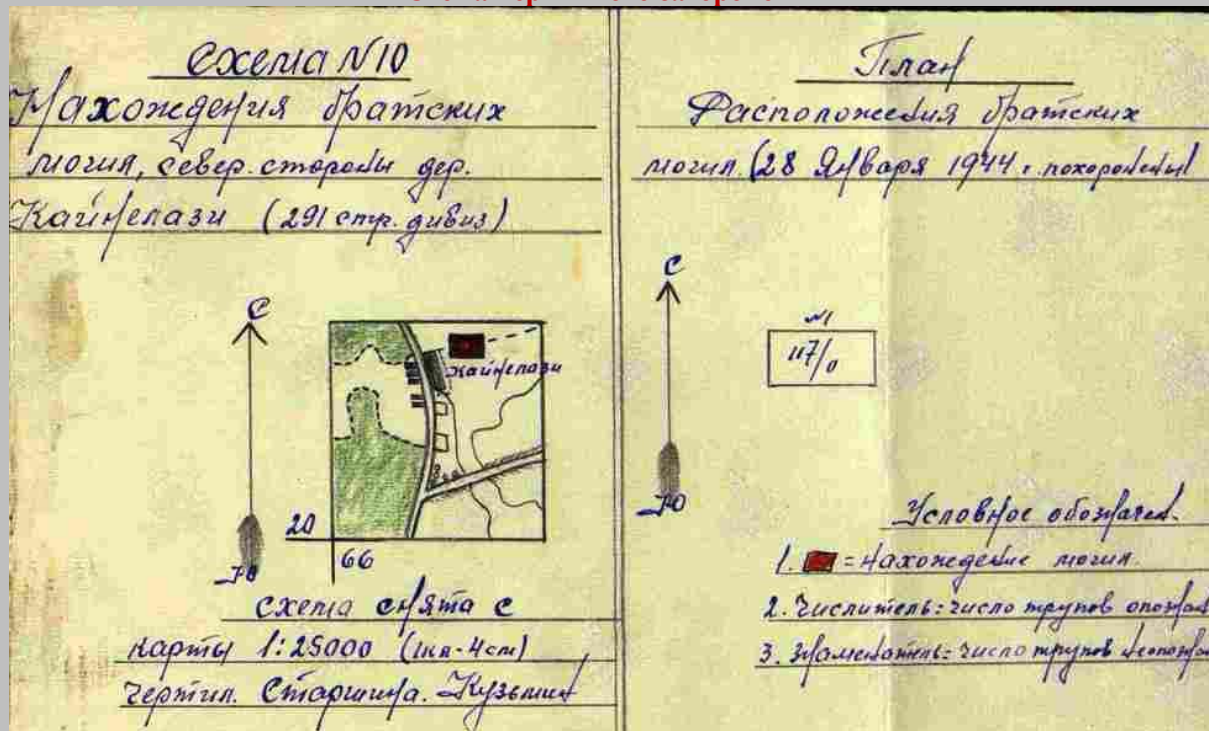 Схема N10
Нахождения братских
могил, север. стороны дер.
Кайнелази (291 стр. дивиз)
С
Кайнелази
20
66
Ю
схема снята с
карты 1:25000 (1км-4см)
Чертил. Старшина. Кузьмин
План
Расположения братских
могил. (28 Января 1944 г. похоронены)
С
N1
117/0
Ю
Условное обозначен.
1. = Нахождение могил.
2. Числитель: число трупов опознан
3. Знаменатель: число трупов неопознан